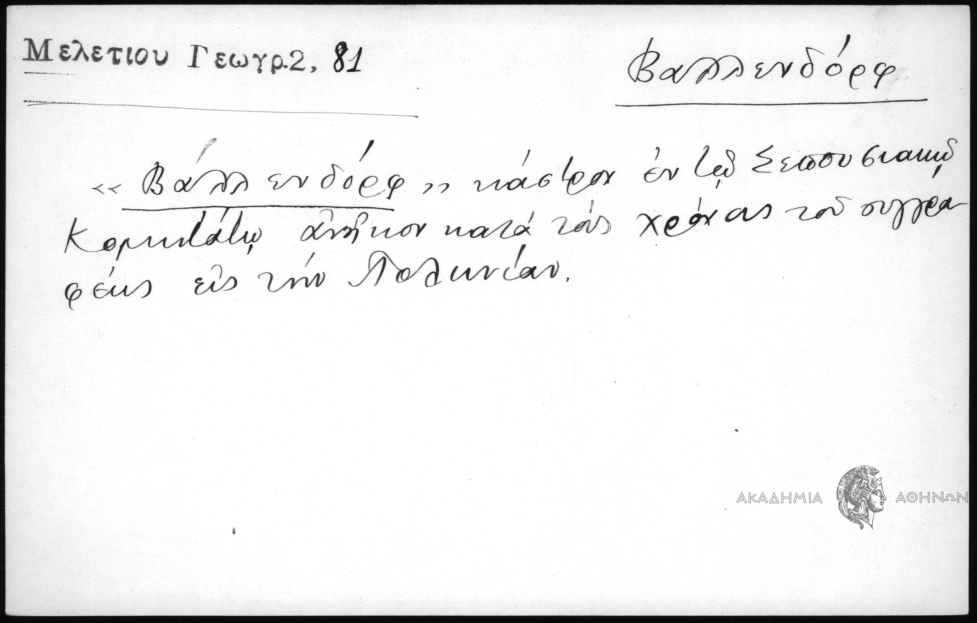 Μελετιου Γεωγρ.2, 81
Βαλλενδόρφ
«Βάλλενδόρφ» κάστρον ἐν τῷ Σεπουσιακῷ
Κομιτάτῳ ἀνῆκον κατά τούς χρόνους τοῦ συγγρα-
φέως εἰς τήν Πολωνίαν.
ΑΚΑΔΗΜΙΑ ΑΘΗΝΩΝ